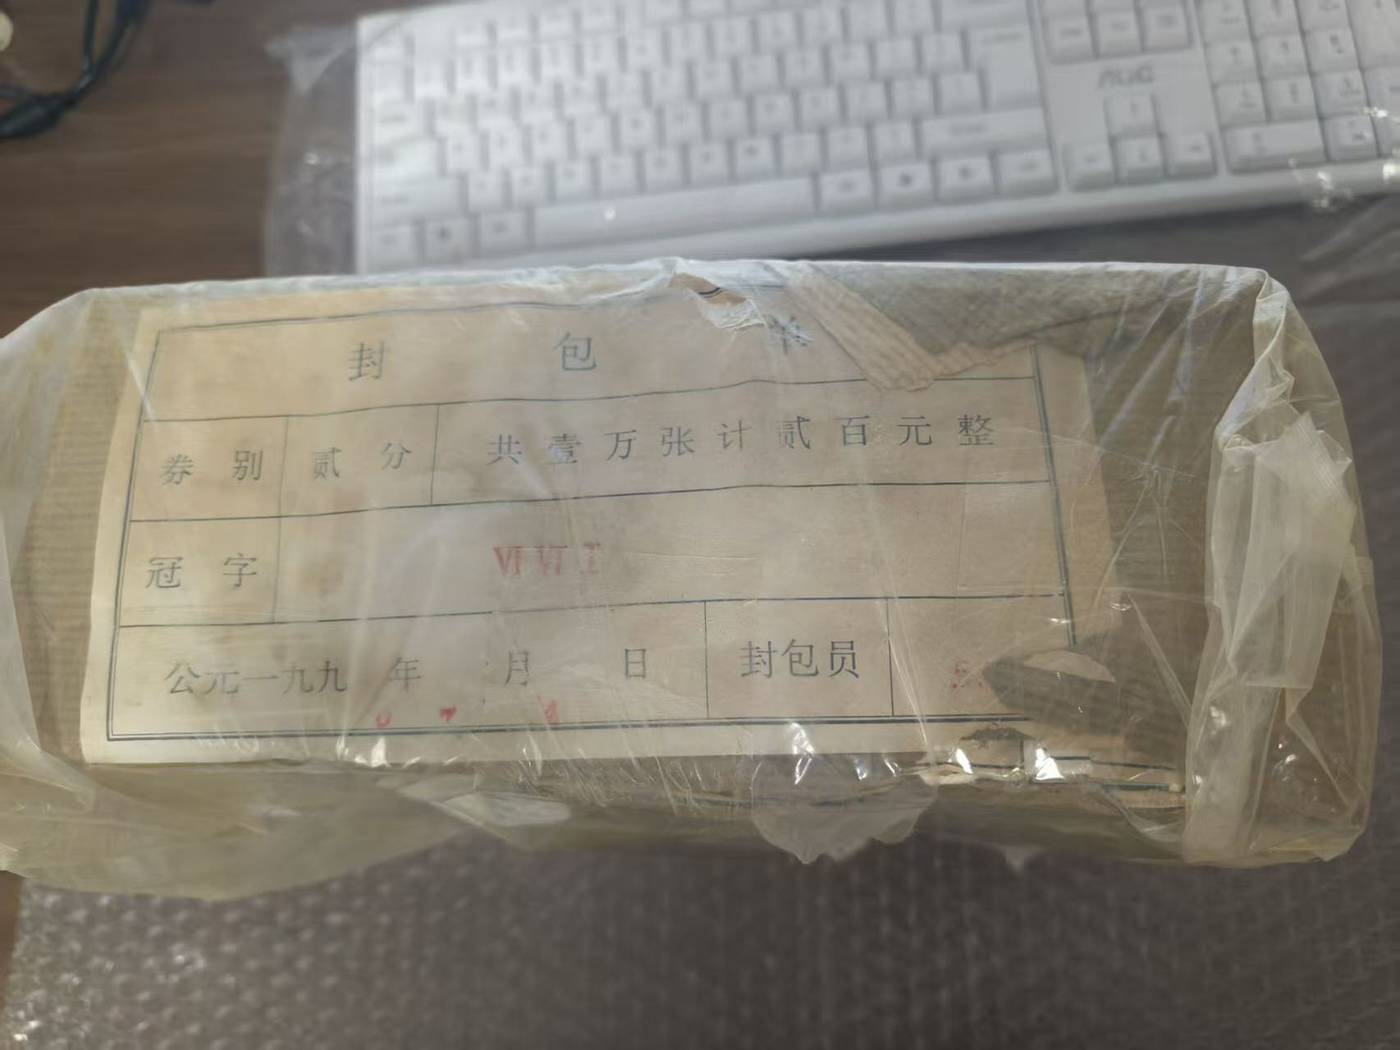 封 包 单
券 别 贰 分 共 壹 万 张 计 贰 百 元 整
冠 字 ⅥⅥⅠ
公元一九九 年 月 日 封包员